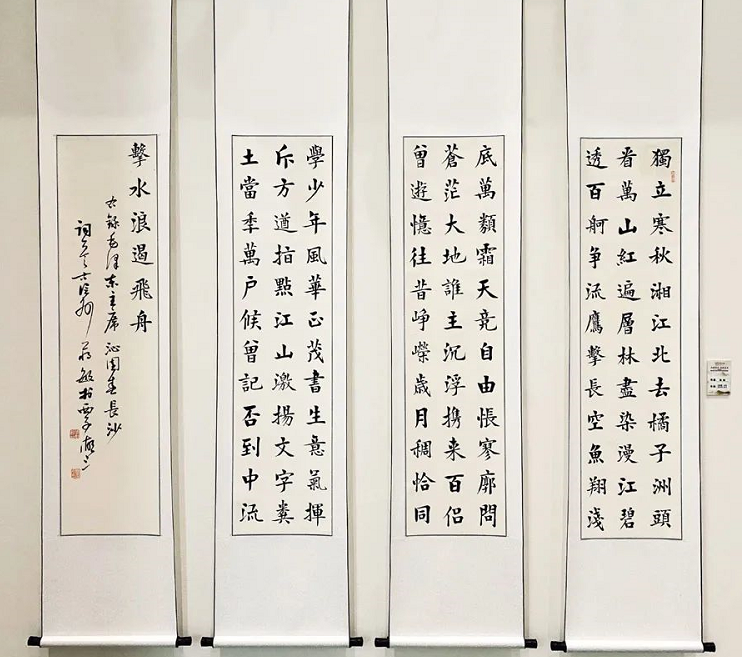 獨立寒秋湘江北去橘子洲頭
看萬山紅遍層林盡染漫江碧
透百舸争流鷹擊長空魚翔淺
底萬類霜天竞自由悵寥廓問
蒼茫大地誰主沉浮携来百侣
曾遊憶往昔崢嶸歲月稠恰同
學少年風華正茂書生意氣揮
斥方遒指點江山激揚文字糞
土當秊萬户候曾記否到中流
擊水浪遏飛舟
右錄毛澤东主席沁園春長沙